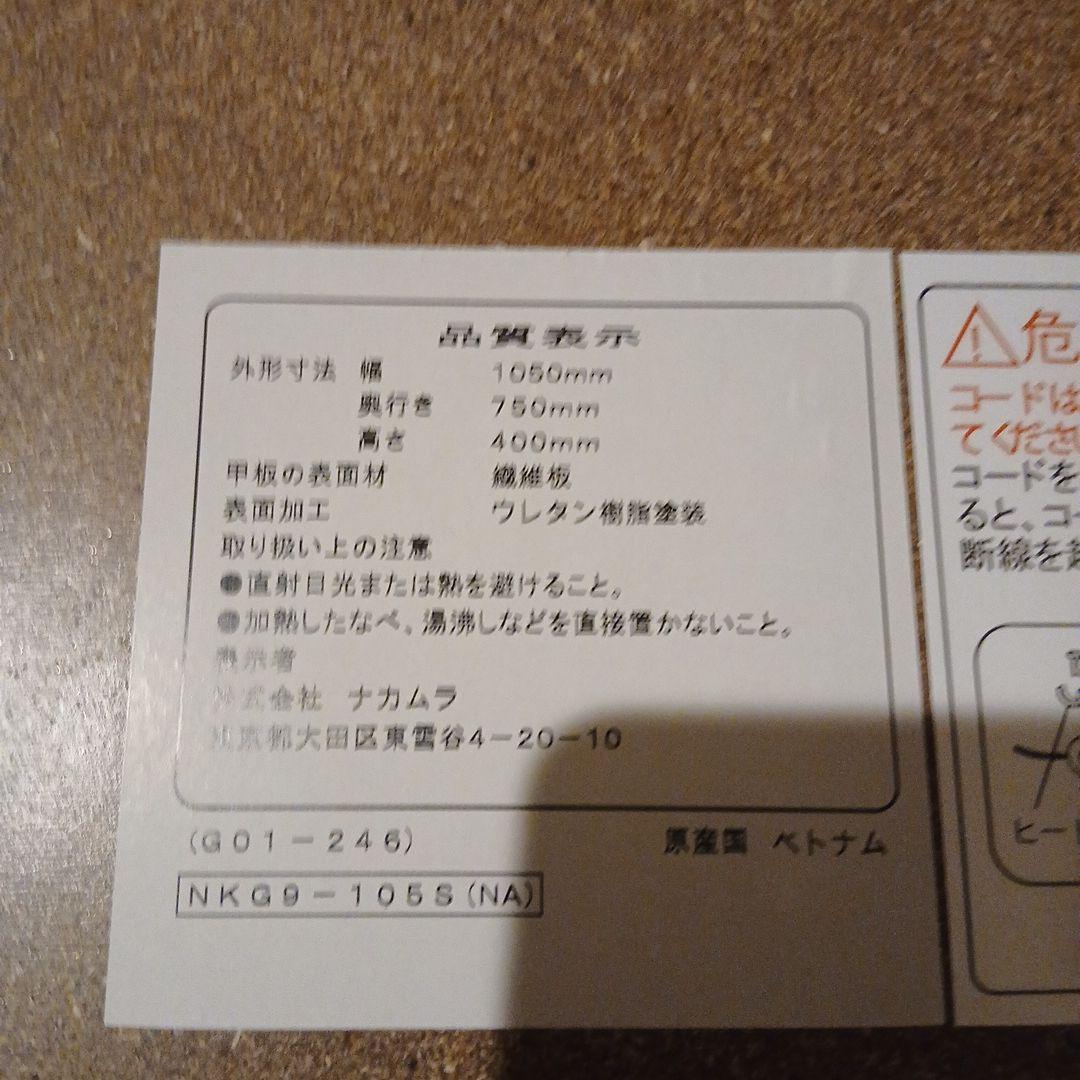 品質表示
外形寸法 幅 1050mm
奥行き 750mm
高さ 400mm
甲板の表面材 繊維板
表面加工 ウレタン樹脂塗装
取り扱い上の注意
●直射日光または熱を避けること。
●加熱したなべ、湯沸しなどを直接置かないこと。
表示者
株式会社 ナカムラ
東京都大田区東雪谷4-20-10
(G01-246)
原産国 ベトナム
NKG9-105S(NA)
危
コードは
てくださ
コードを
ると、コー
断線を
ヒー